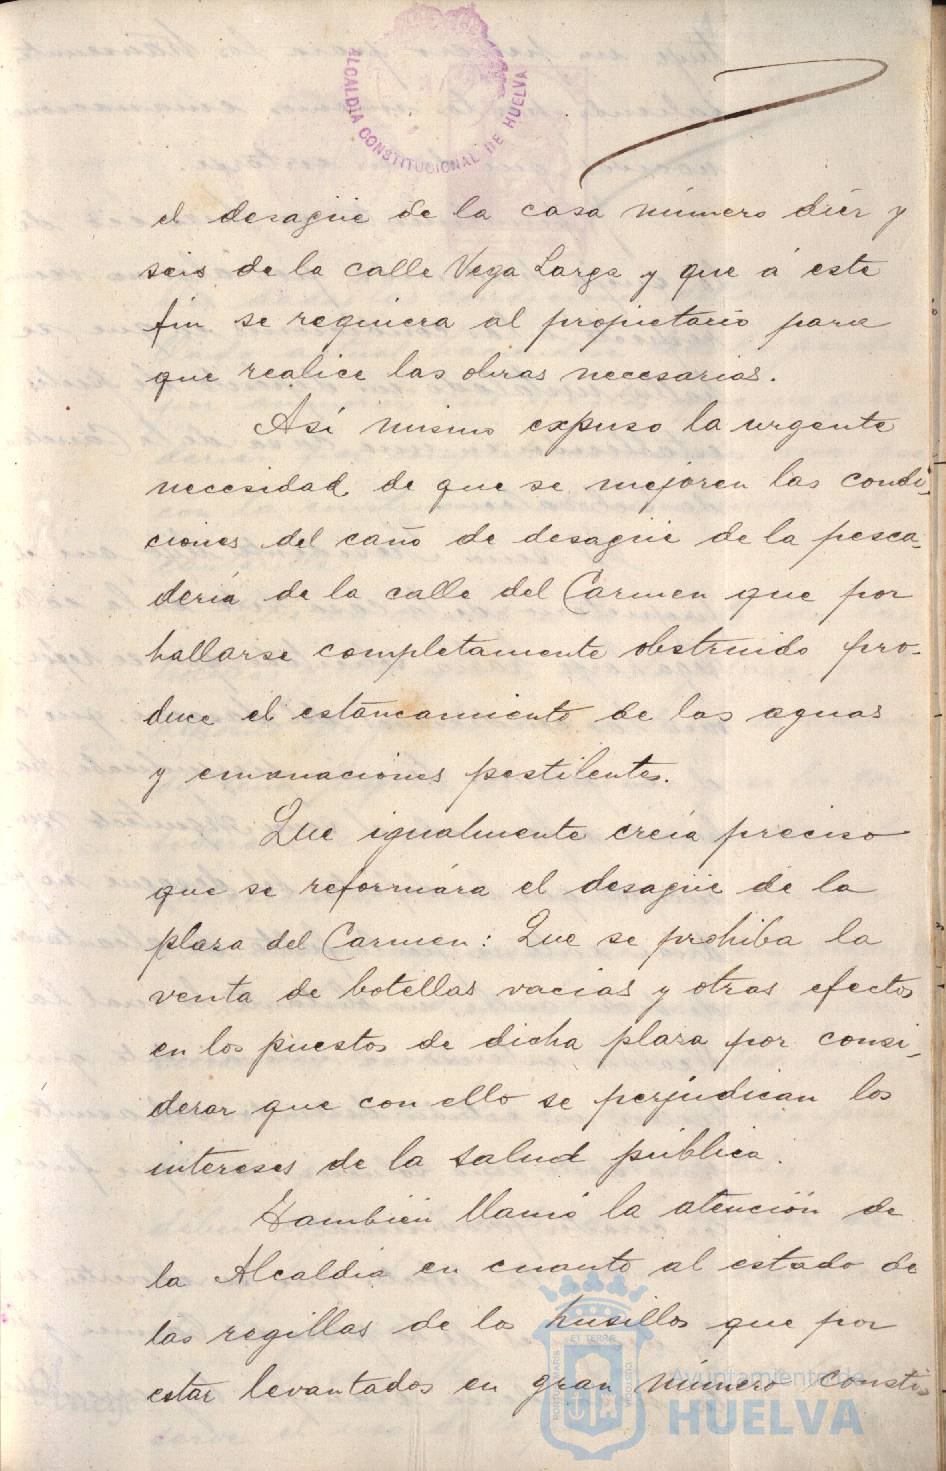 ALCALDIA CONSTITUCIONAL DE HUELVA
el desagüe de la casa número diez y
seis de la calle Vega Larga y que á este
fin se requiera al propietario para
que realice las obras necesarias.
Así mismo expuso la urgente
necesidad de que se mejoren las condi-
ciones del caño de desagüe de la pesca-
dería de la calle del Carmen que por
hallarse completamente obstruido pro-
duce el estancamiento de las aguas
y emanaciones pestilentes.
Que igualmente creía preciso
que se reformára el desagüe de la
plaza del Carmen: Que se prohiba la
venta de botellas vacias y otros efectos
en los puestos de dicha plaza por consi-
derar que con ello se perjudican los
intereses de la salud pública.
También llamó la atención de
la Alcaldia en cuanto al estado de
las regillas de los husillos que por
estar levantados en gran número consti-
Ayuntamiento de
HUELVA